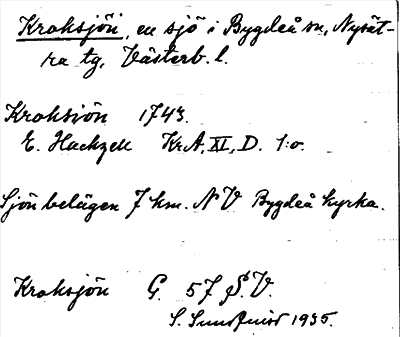 Kroksjön, en sjö i Bygdeå sn, Nysät-
ra tg, Västerb. l.
Kroksiön 1743.
E. Hackzell KrA, XI, D. 1:o.
Sjön belägen 7 km. N V Bygdeå kyrka.
Kroksjön G. 57 S.V.
S. 1935.